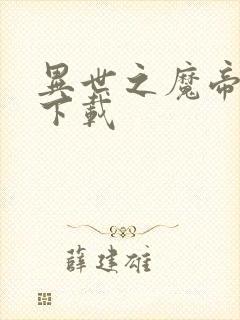 異世之魔帝
下載
薛建雄